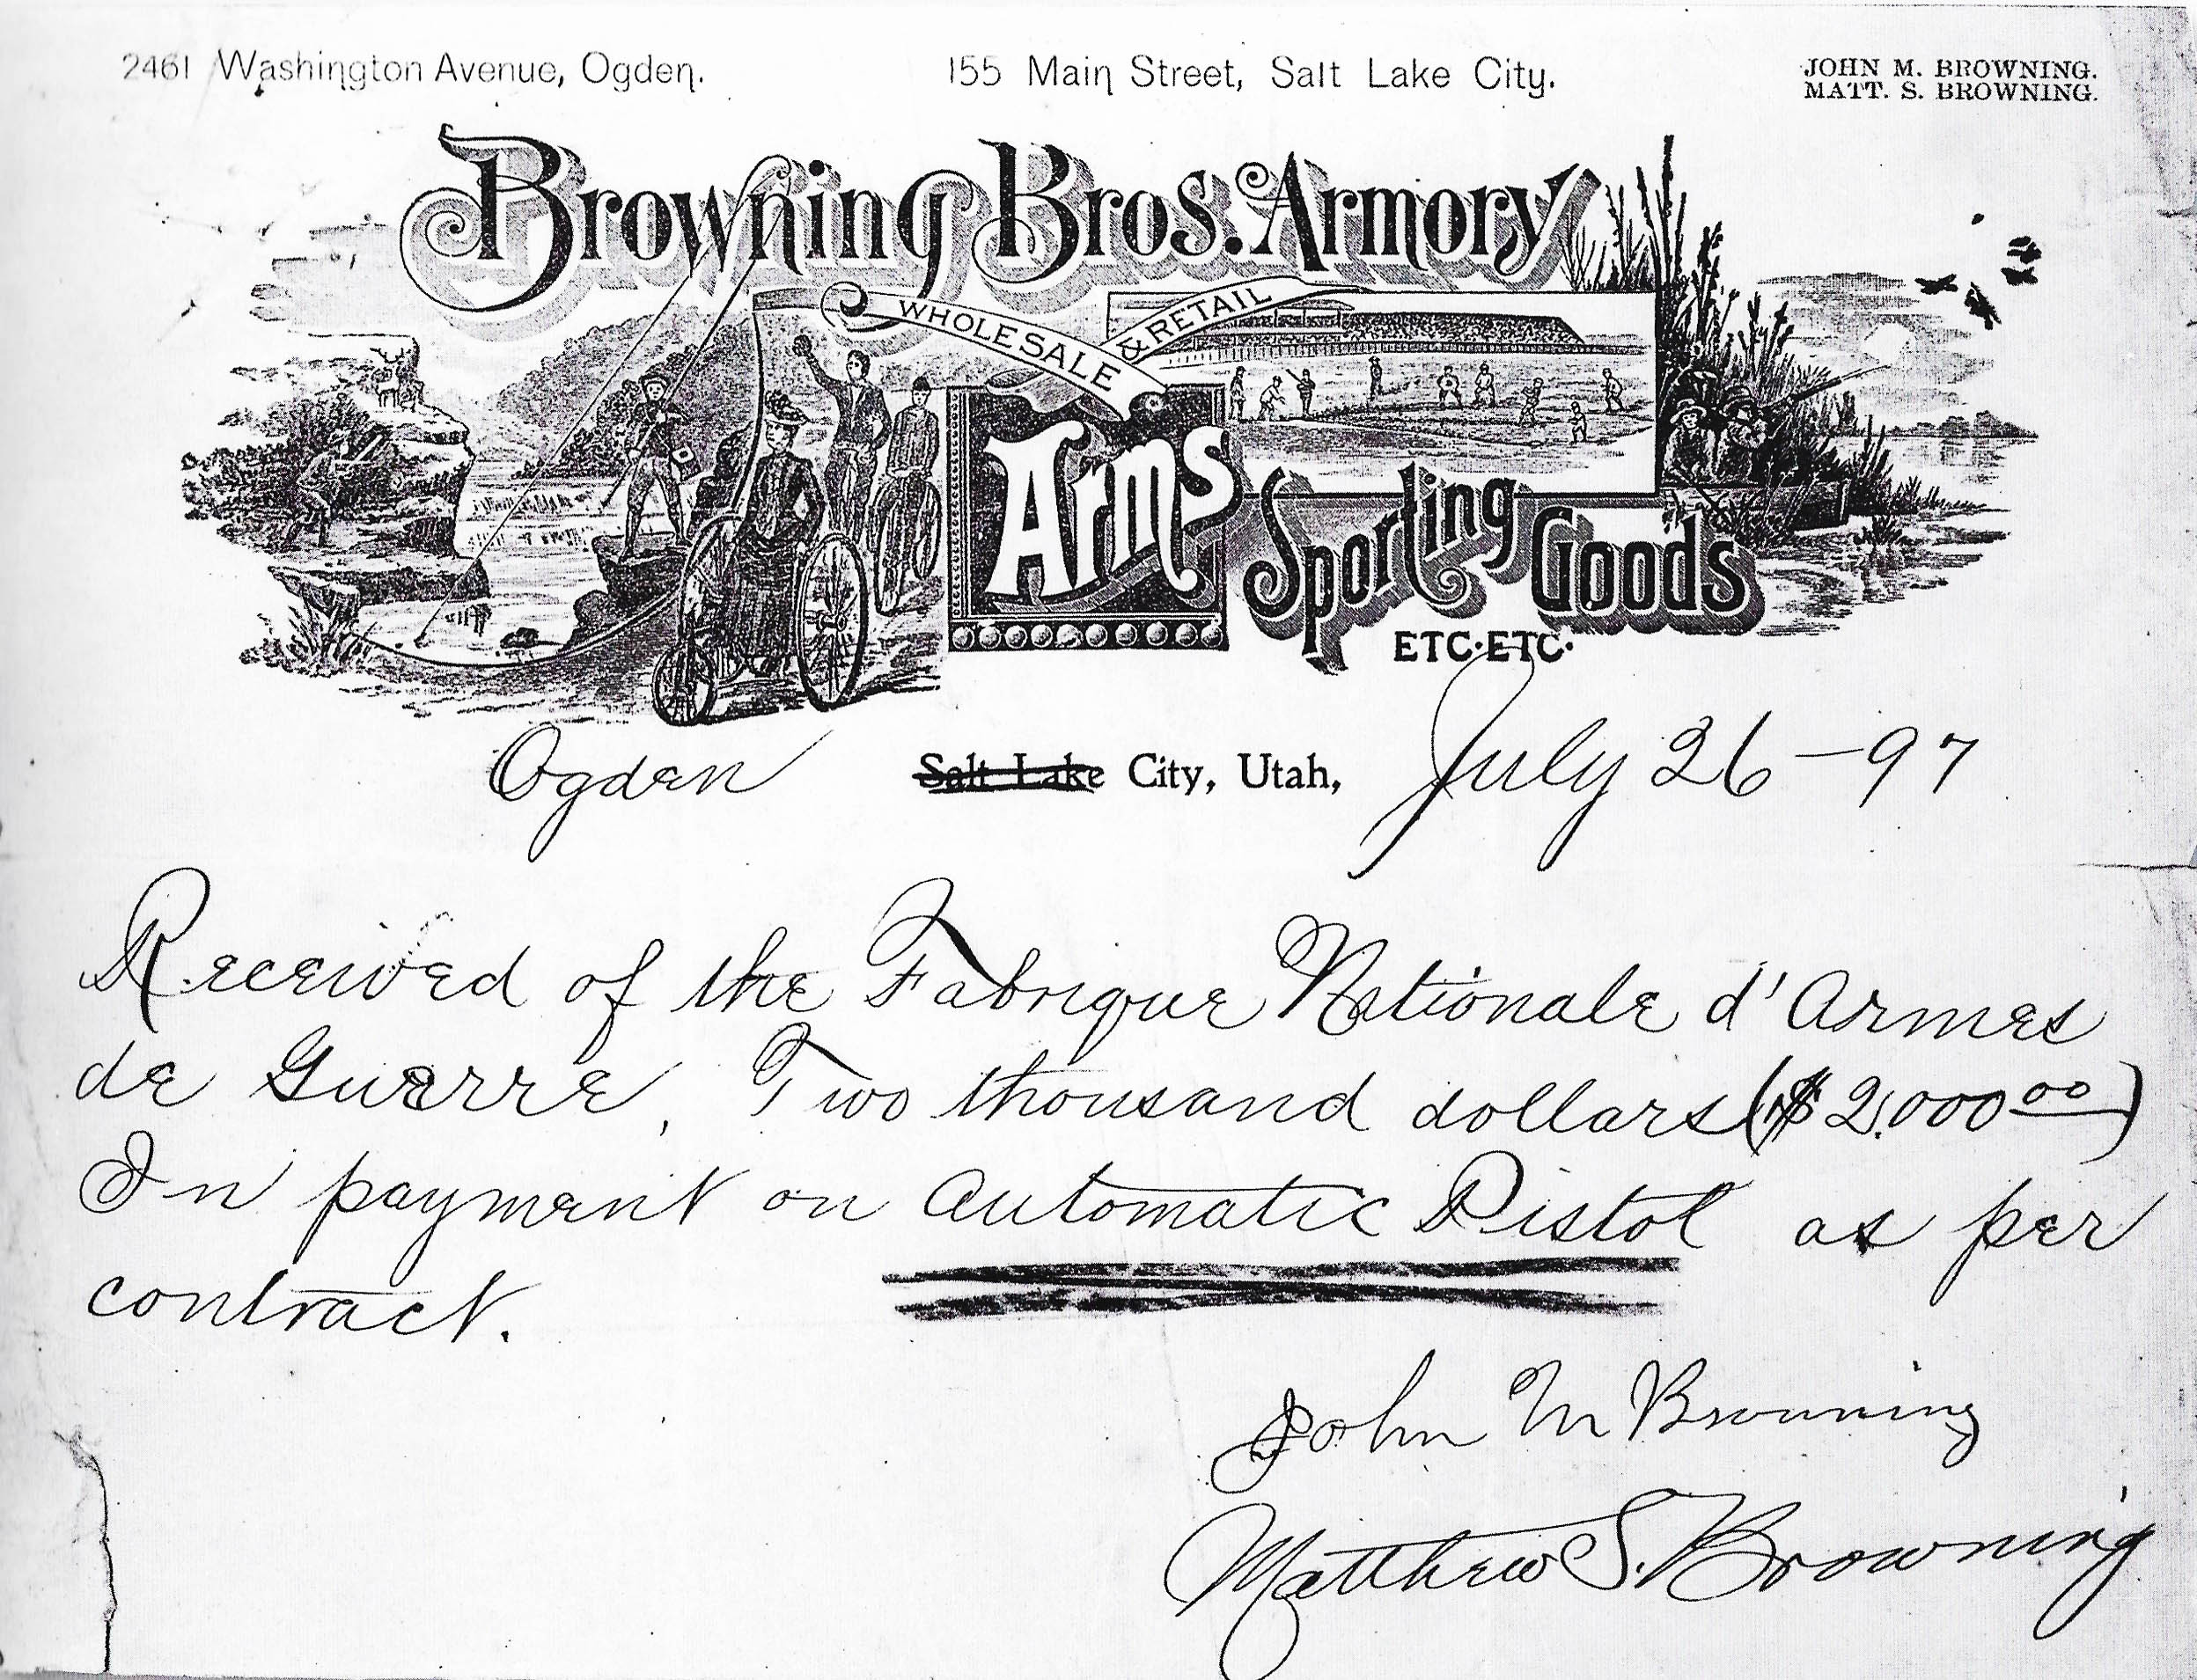 2461 Washington Avenue, Ogden. 155 Main Street, Salt Lake City. JOHN M. BROWNING.
MATT. S. BROWNING.
Browning Bros. Armory
WHOLESALE & RETAIL
Arms
Sporting Goods
ETC. ETC.
Ogden Salt Lake City, Utah, July 26-97
Received of the Fabrique Nationale d'Armes
de Guerre, Two thousand dollars ($2,000 00)
In payment on Automatic Pistol as per
contract.
John M Browning
Matthew S. Browning